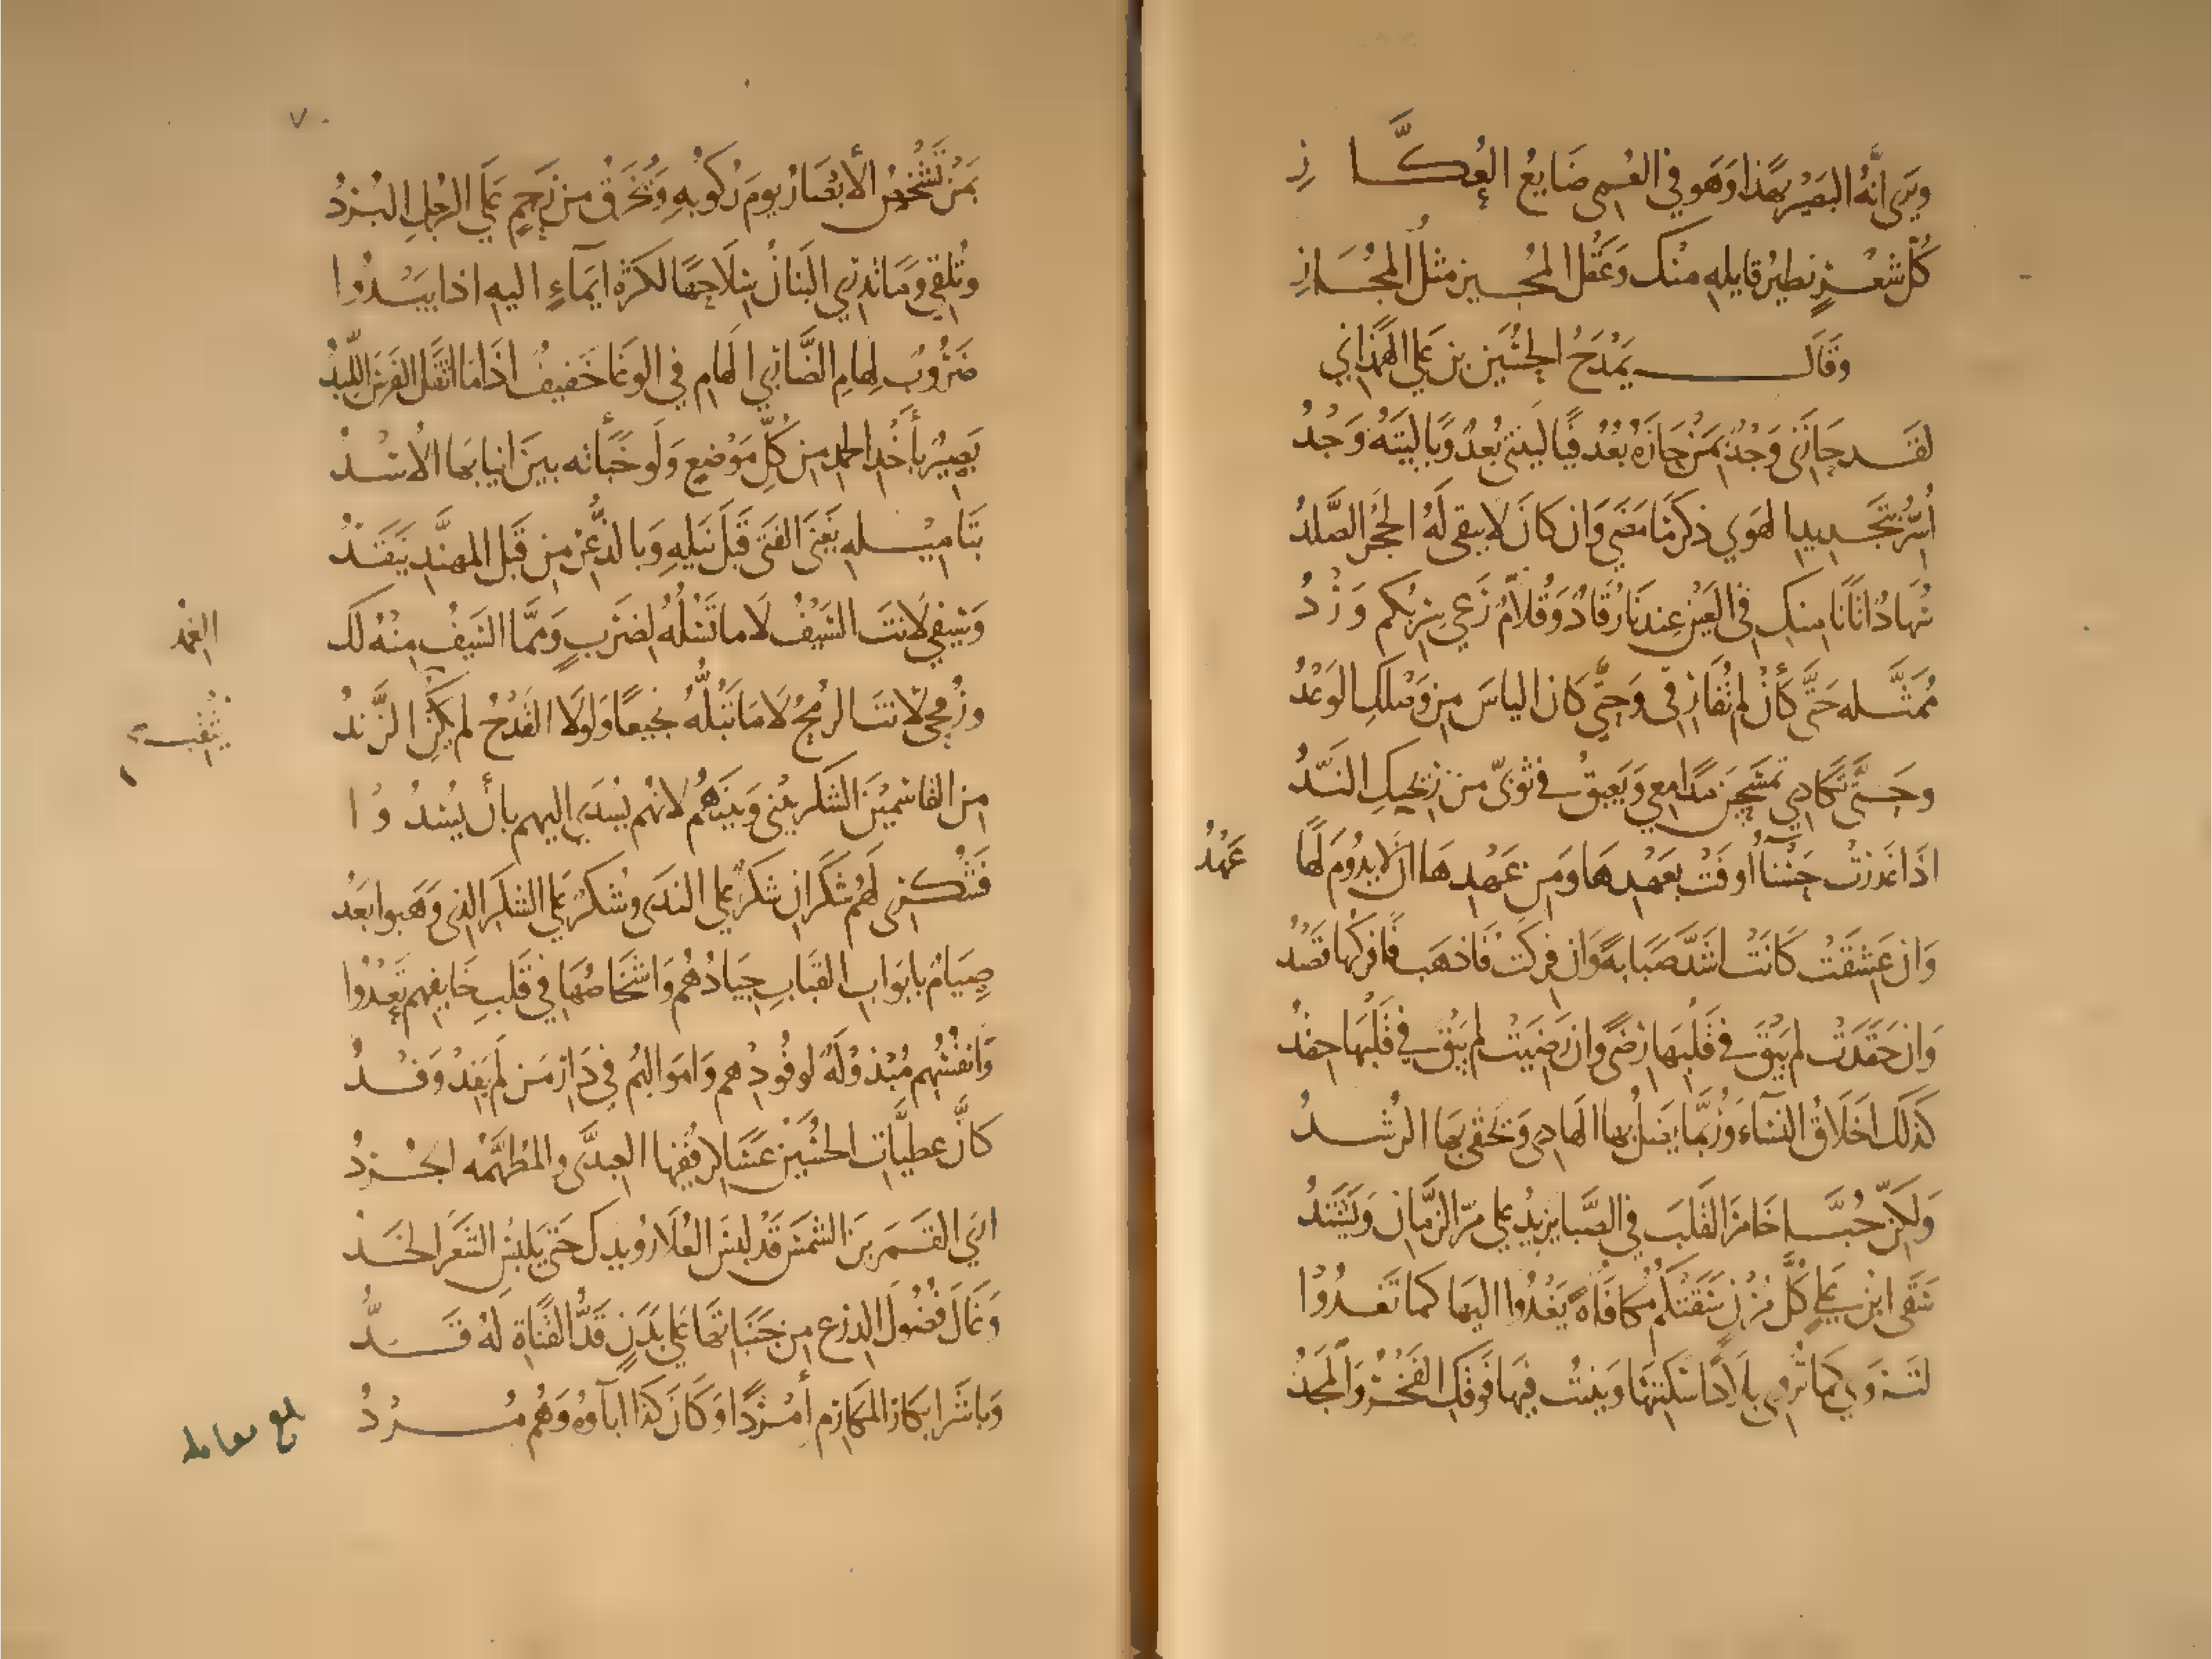 ويرى أنَّهُ البَصيرُ بهَذا وَهوَ في العُمي ضَايعُ العُكَّازِ
كُلُّ شعْرٍ نظيرُ قايلِهِ منْك وَعَقْل المُجيز مثلُ المُجَازِ
وقَالَ يَمْدَحُ الحُسَين بن عَلي الهَمَذاني
لقَد حَازَني وَجْدٌ بمَنْ حَازَهُ بُعْدُ فيَا ليتني بُعدٌ ويَا ليتَهُ وَجْدُ
أُسَرُّ بتَجديدِ الهَوى ذكرَ مَا مَضَى وَان كانَ لا يبقى لَهُ الحَجَرُ الصَّلدُ
سُهادٌ أتانَا منكِ في العَيْن عِندنَا رُقادٌ وَقُلاّمٌ رَعى سِربُكم وَرْدُ
مُمَثَّله حَتَّى كَأنْ لم تُفَارِقي وَحتَّى كَان الياسَ مِن وَصْلكِ الوَعْدُ
وحَتَّى تَكَادي تمسَحينَ مدَامعي وَيَعبقُ في ثوبيّ من ريحكِ النَّدُّ
اذَا غدَرَتْ حَسْنآءُ أوفَتْ بعَهْدِهَا وَمِن عَهْدِها ان لا يدُومَ لهَا عَهْدُ
وَان عَشقَتْ كَانَتْ اشَدَّ صَبَابةً وَان فركَتْ فَاذهَب فمَا فركُها قصْدُ
وَان حَقَدَتْ لم يَبْقَ في قَلْبهَا رضًى وَان رَضيَتْ لم يَبْقَ في قَلْبهَا حقْدُ
كذَلكَ اخَلاقُ النسَاءِ وَرُبَّمَا يَضلُّ بهَا الهَادي وَيَخفَى بهَا الرشدُ
وَلكِنَّ حُبًّا خَامَرَ القَلبَ في الصِّبا يزيدُ على مَرّ الزمَانِ وَيَشتَدُّ
سَقَى ابنُ عَليٍّ كُلَّ مُزْنٍ سَقَتْكُمُ مكافَأةً يَغْدُوا اليهَا كمَا تَغدُوا
لتَروَي كمَا تُروي بلادًا سَكَنْتهَا وَينبُتَ فيهَا فَوقَكِ الفَخْرُ وَالمَجْدُ
٧٠
بمَنْ تَشْخَصُ الأبْصَارُ يومَ رُكُوبهِ وَتُخْرَقُ من زَحمٍ عَلى الرَجُلِ البُرْدُ
وتُلقي ومَا تدري البَنانُ سِلاحَهَا لكثرةِ ايمَآءٍ اليهِ اذا يَبدُوا
ضَرُوبٌ لِهامِ الضَّاربي الهَام في الوغَا خَفيفٌ اذَا مَا اثقَلَ الفَرسَ اللّبدُ
بَصيرٌ بأخْذِ الحَمد من كُلّ مَوْضعٍ وَلَو خَبّأته بينَ انيابهَا الأسْدُ
بتَاميلهِ يَغنَى الفَتَى قَبلَ نَيلِهِ وَبالذُّعْرِ مِن قَبل المهنَّدِ يَنقَدُّ
وَسَيفي لَانتَ السَيْفُ لَا ما تَسُلُّهُ لضَربٍ وَممَّا السَيفُ مِنْهُ لكَ الغِمْدُ
ورُمحي لَانتَ الرمحُ لَا مَا تَبُلُّهُ نجيعًا وَلولَا القَدْحُ لم يَكُن الزَّندُ
يثقب
مِن القَاسمينَ الشكر بَيْني وَبَينَهُم لانهُم يُسْدَى اليهم بأن يُسْدُوا
فَشكري لَهُم شكرَانِ شكرٌ على النَدَى وشكرٌ عَلى الشكرِ الذي وَهَبوا بَعْدُ
صِيَامٌ بابوَاب القبَابِ جيَادُهُم وَاشخَاصُهَا في قَلبِ خَايفِهم تَعْدُوا
وَانفسُهُم مَبْذُولَةٌ لوفُودهِم وَاموَالهُم في دَارِ مَن لَم يَفِدْ وَفدُ
كَأنَّ عطيَّات الحُسَيْن عَسَاكرٌ ففيهَا العبدَّى والمُطهَّمَه الجُرْدُ
ارَى القَمَر بنَ الشمسِ قَدْ لبسَ العُلَا رُويدكَ حتَى يلبسُ الشَعَرَ الخَدُّ
وَغَالَ فُضُولَ الدرْع مِن جَنَبَاتهَا عَلى بَدَنٍ قَدُّ القَنَاةِ لَهُ قَدُّ
وَبَاشَر ابكارَ المَكَارم أمْرَدًا وَكَانَ كَذَا آبآوهُ وَهُم مُردُ
بلغ مقابله